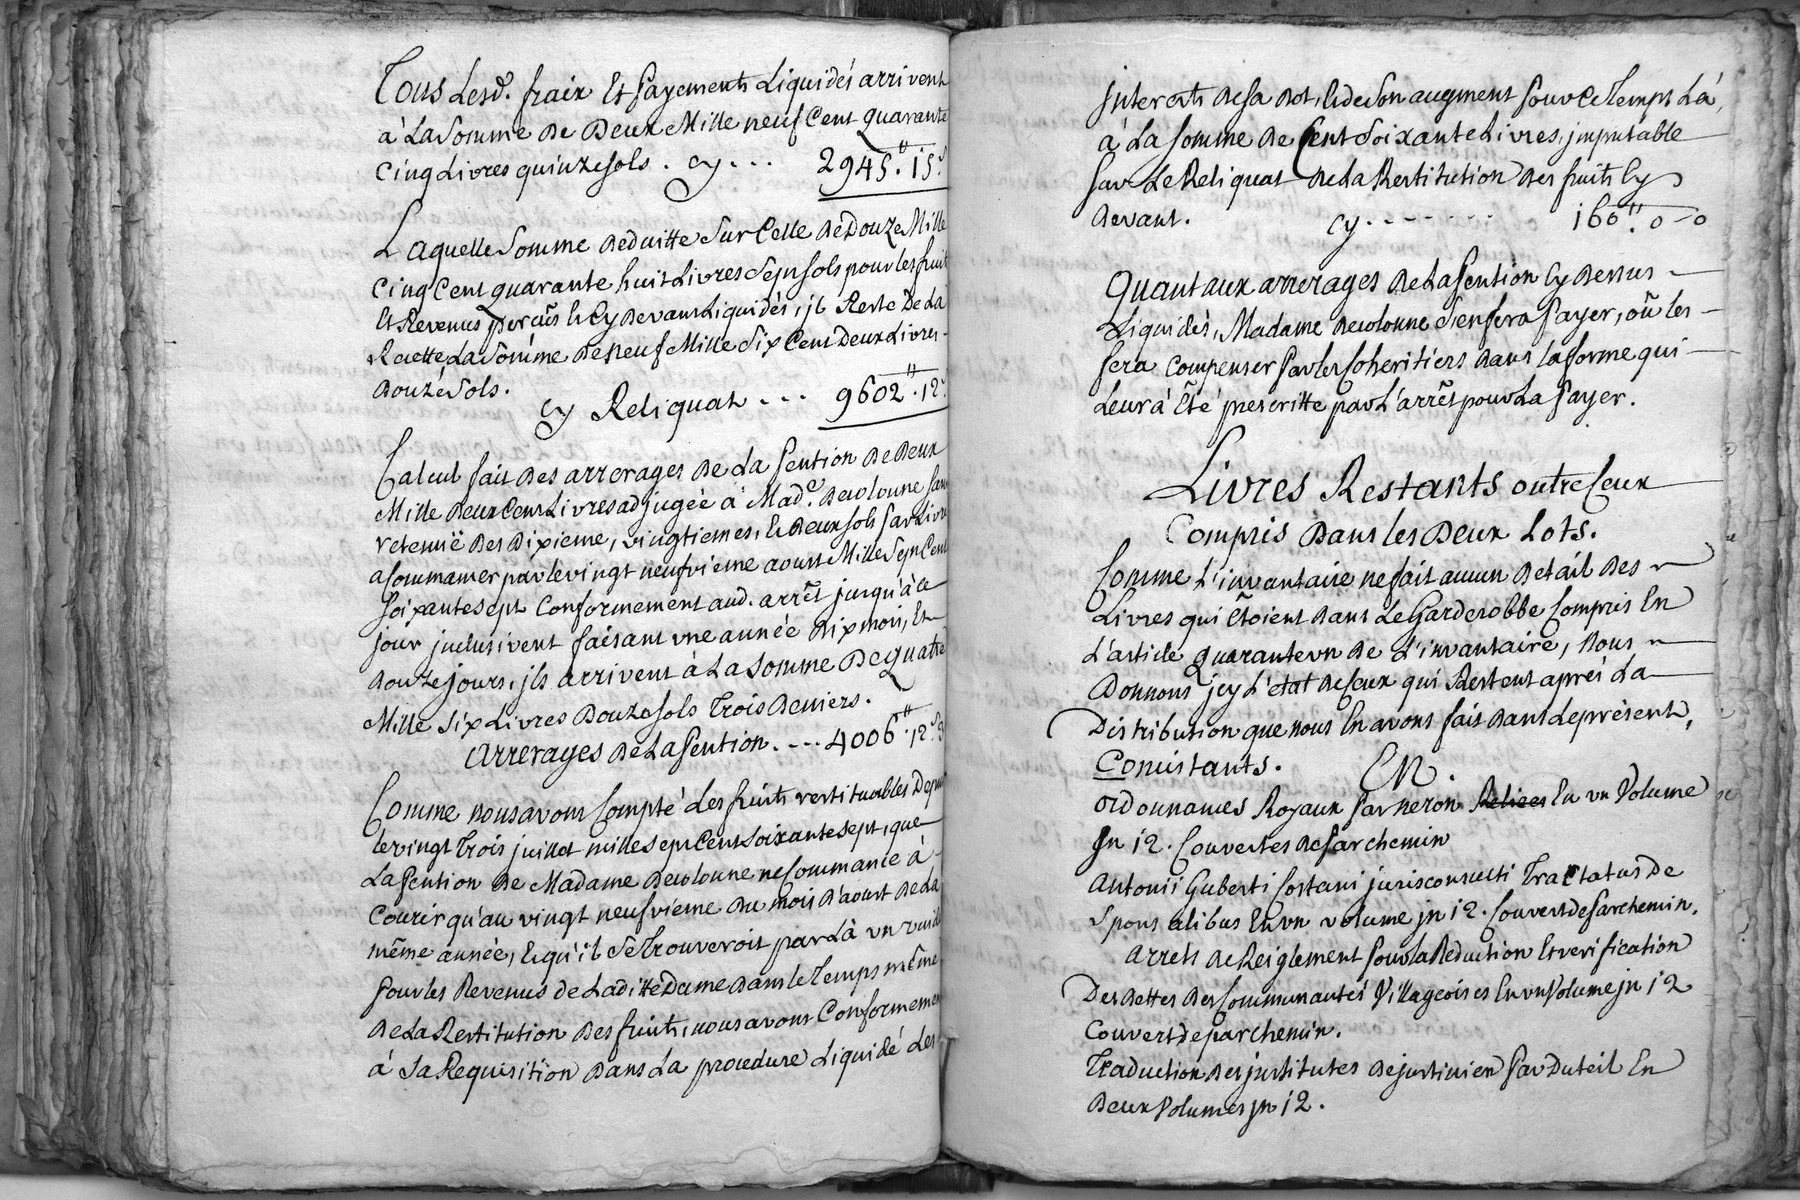 Tous Lesd. fraix Et payements Liquidés arrivent
à La Somme de Deux Mille neuf Cent quarante
Cinq Livres quinze sols . Cy... 2945.tt 15.s
Laquelle Somme déduitte sur Celle de Douze Mille
Cinq Cent quarante huit Livres sept sols pour les fruits
Et Revenus perçus Et Cy devant Liquidés, il Reste De La
Recette La Somme de neuf Mille Six Cent Deux Livres
Douze Sols.
Cy Reliquat ... 9602.tt 12.s
Calcul fait des arrerages de La pention de Deux
Mille deux Cent Livres adjugée à Made. Decolonne sans
retenuë des Dixieme, vingtiemes, & Deux sols par Livre
a Commancer par le vingt neufvieme aoust Mille Sept Cent
soixante sept Conformement aud. arrêt jusqu'à ce
jour jnclusivent faisant vne année dix mois, Et
Douze jours, jls arrivent à La Somme De quatre
Mille Six Livres Douze sols Trois Deniers.
Arrerages de La pention. ... 4006.tt 12.s 3
Comme nous avons Compté Les fruits restituables Depuis
le vingt Trois juillet mille sept Cent soixante sept, que
La pention de Madame Decolonne ne Commance à
Courir qu'au vingt neufvieme du mois d'aoust de La
même année, & qu'il se Trouveroit par Là vn vuide
pour les Revenus de Laditte Dame dans le Temps même
de La Restitution des fruits, nous avons Conformement
à Sa Requisition dans La procedure Liquidé Les
jnterests de sa dot, & de son augment pour ce Temps Là,
à La somme de Cent Soixante Livres, jmputable
sur Le Reliquat de La Restitution des fruits Cy
devant. Cy....... 160.tt 0-0
Quant aux arrerages de La pention Cy dessus
Liquidés, Madame Decolonne s'en fera payer, oû les
fera Compenser par les Coheritiers dans la forme qui
Leur à Eté prescritte par L'arrêt pour La payer.
Livres Restants outre Ceux
Compris Dans les Deux Lots.
Comme L'invantaire ne fait aucun détail des
Livres qui Etoient dans Le Garderobbe Compris En
L'article quarante vn de L'invantaire, Nous
Donnons jcy L'etat de Ceux qui Restent aprés La
Distribution que nous En avons fait dans le présent,
Consistants. En.
ordonnances Royaux par neron Relices En vn Volume
Jn 12. Couvertes de parchemin
Antonii Guberti Costani jurisconsulti Tractatus De
Sponsalibus En vn volume jn 12. Couvert de parchemin.
Arrets de Reiglement pour la Réduction Et verification
Des dettes des Communautés Villageoises En vn Volume jn 12
Couvert de parchemin.
Traduction des jnstitutes de justinien par Duteil En
Deux Volumes jn 12.